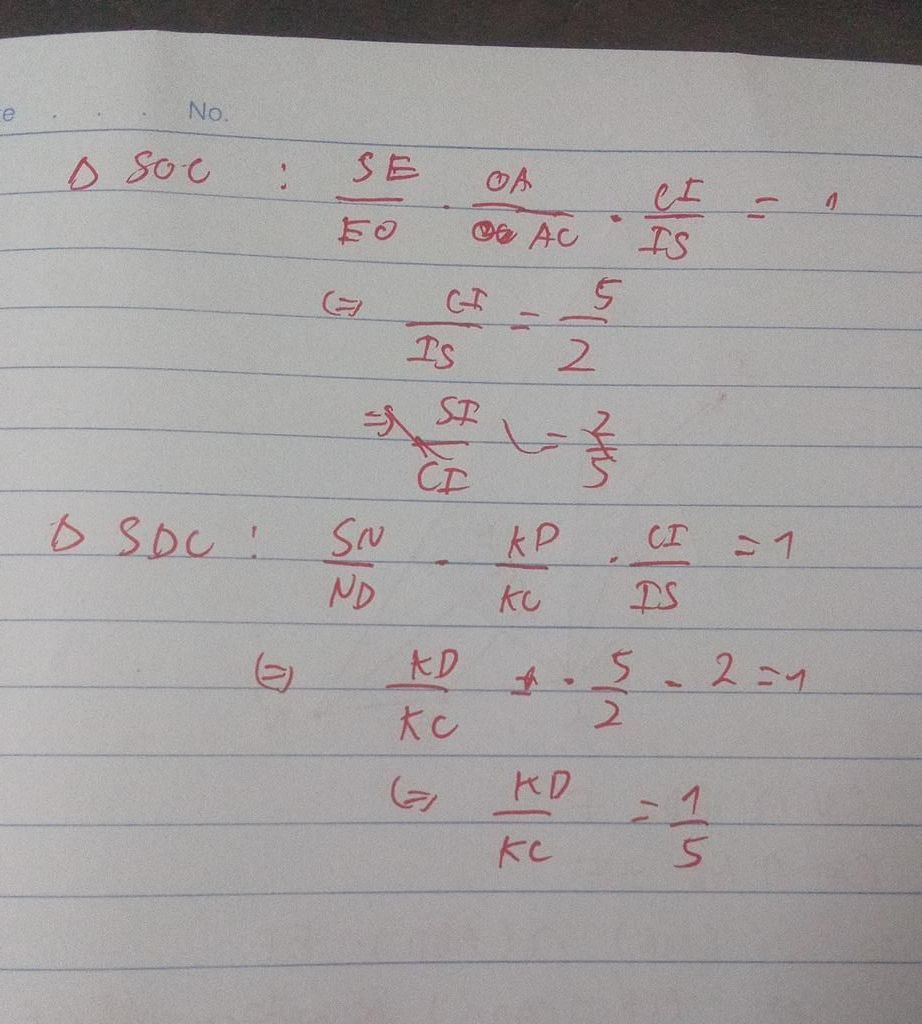 e . . . No.
Δ SOC : SE/EO . OA/AC . CI/IS = 1
(=) CI/IS = 5/2
=) SI/CI = 2/5
Δ SDC : SN/ND . KD/KC . CI/IS = 1
(=) KD/KC . 5/2 . 2 = 1
(=) KD/KC = 1/5